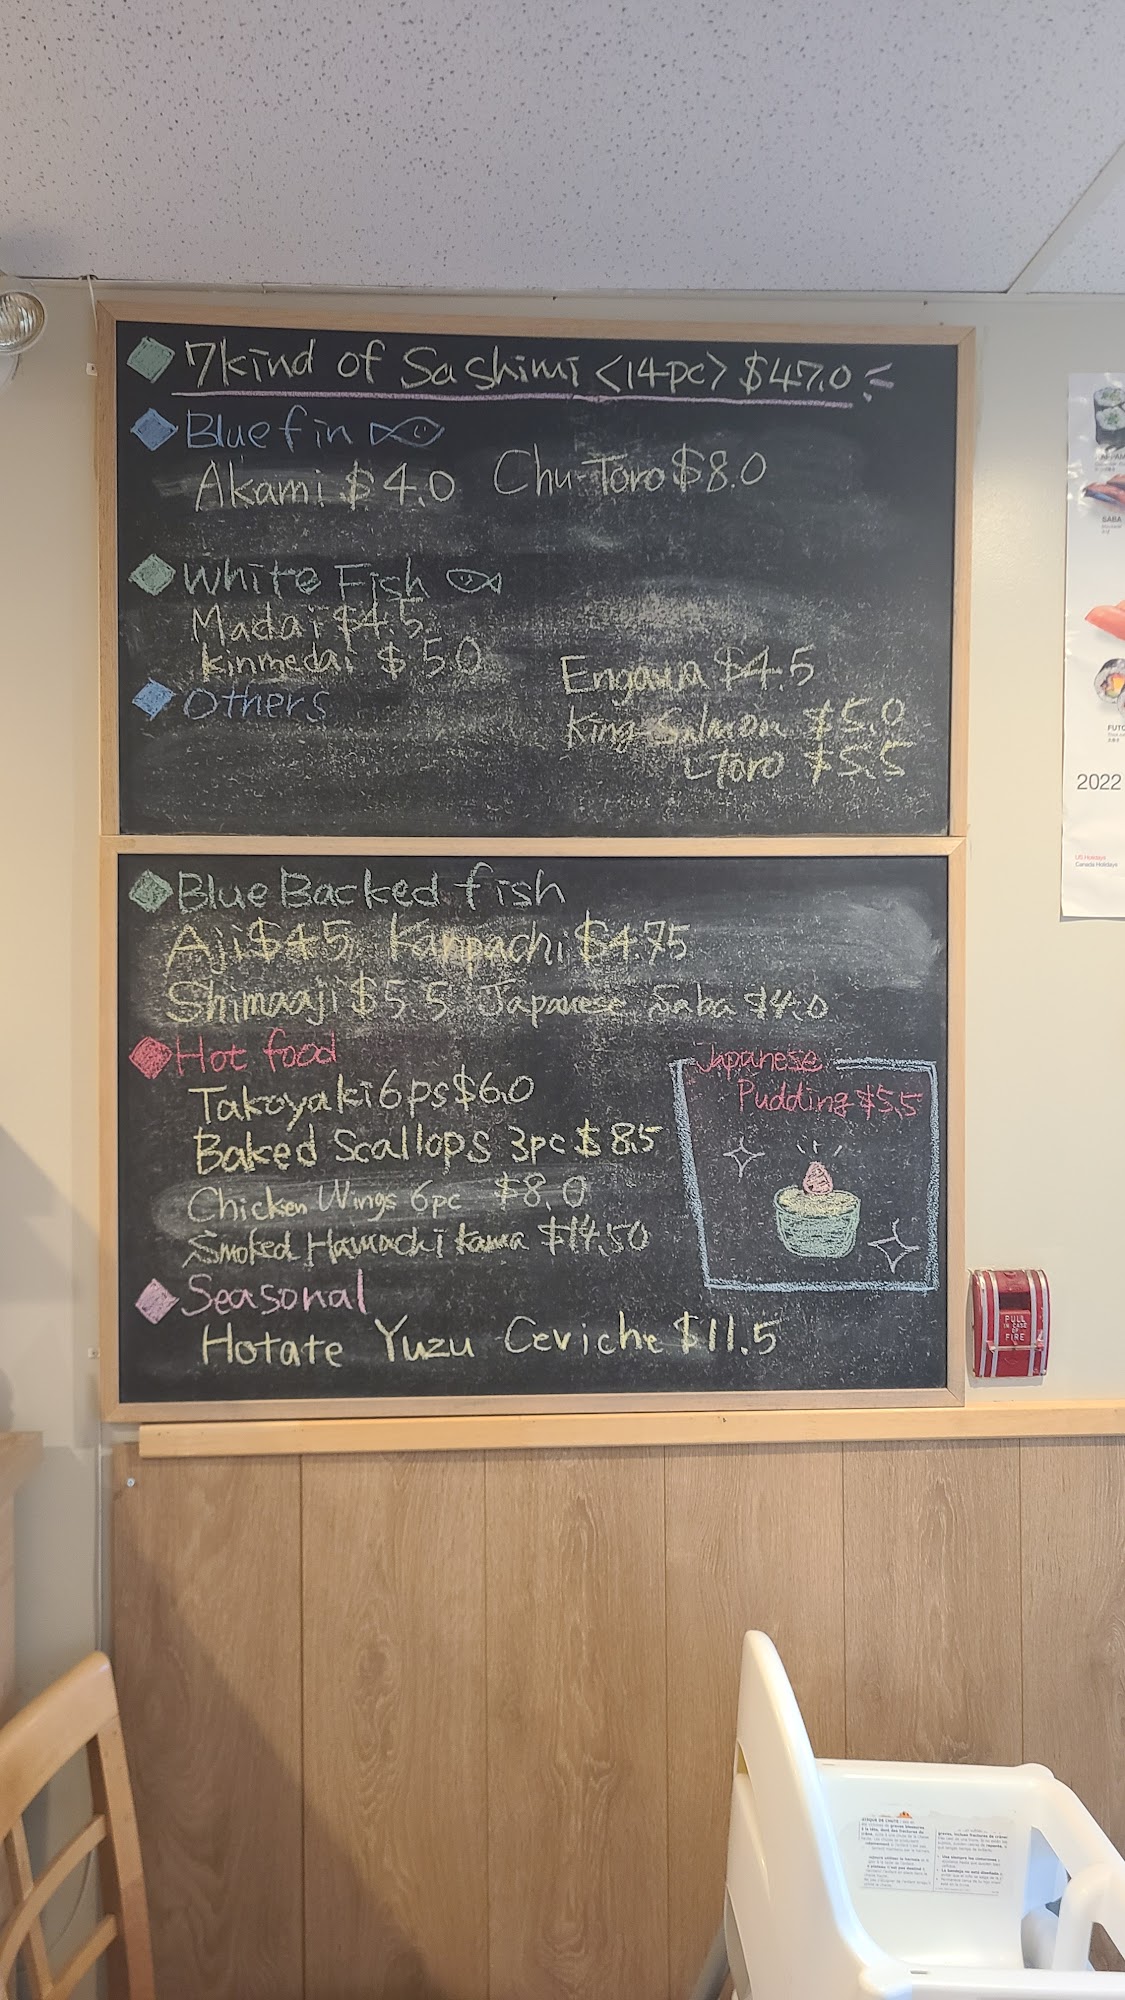 7kind of Sashimi <14pc> $47.0
Bluefin
Akami $4.0 Chu-Toro $8.0
White Fish
Madai $4.5
Kinmedai $5.0
Others
Engawa $4.5
King Salmon $5.0
Toro $5.5
Blue Backed fish
Aji $4.5 Kanpachi $4.75
Shimaaji $5.5 Japanese Saba $4.0
Hot food
Takoyaki 6ps $6.0
Baked Scallops 3pc $8.5
Chicken Wings 6pc $8.0
Smoked Hamachi kama $14.50
Japanese
Pudding $5.5
Seasonal
Hotate Yuzu Ceviche $11.5
SABA
2022
US Holidays
Canada Holidays
PULL
IN CASE
OF
FIRE